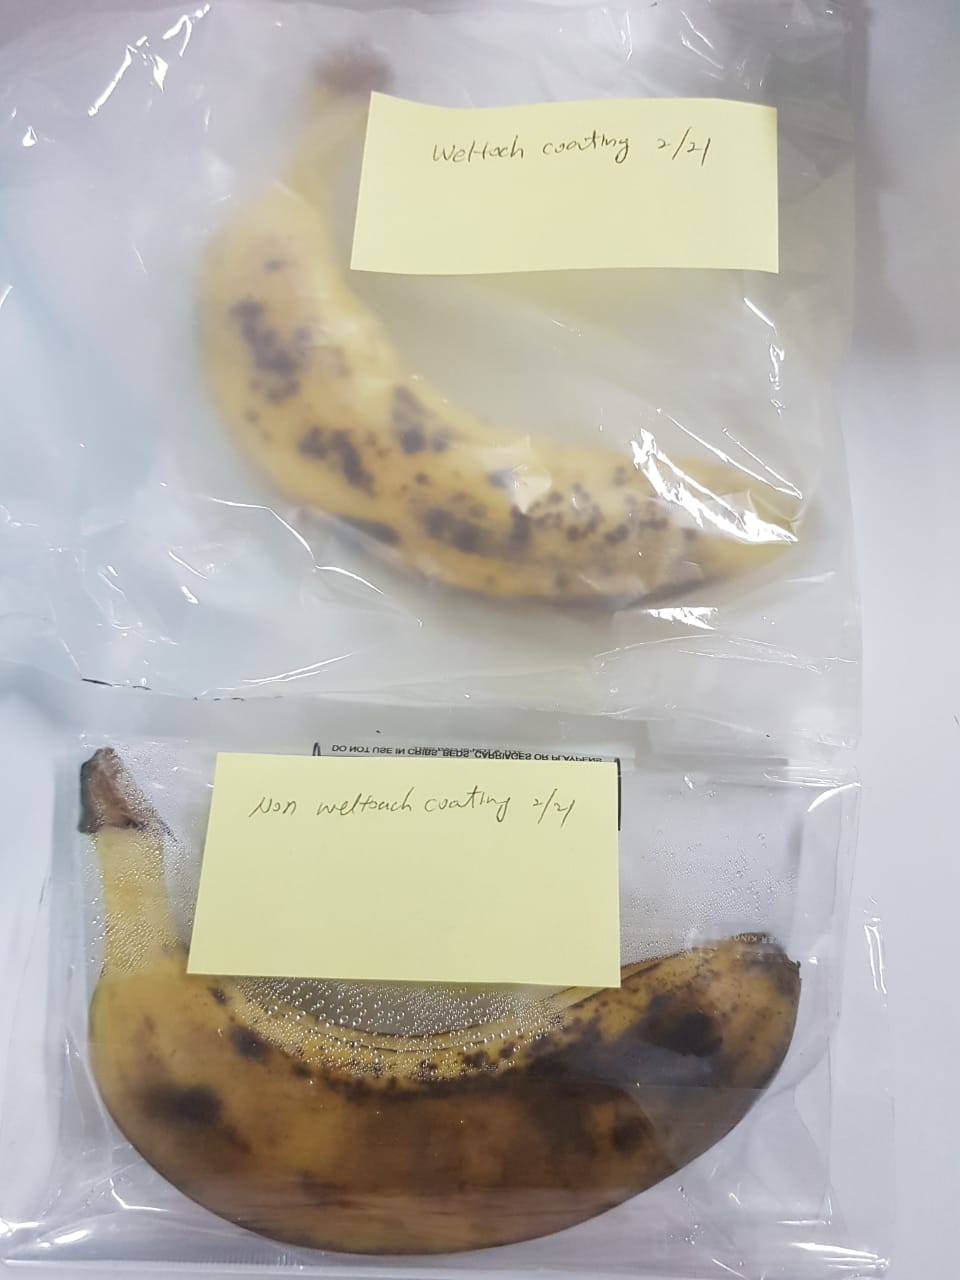 Weltach coating 2/21
DO NOT USE IN CRIBS, BEDS, CARRIAGES OR PLAYPENS
Non weltouch coating 2/21